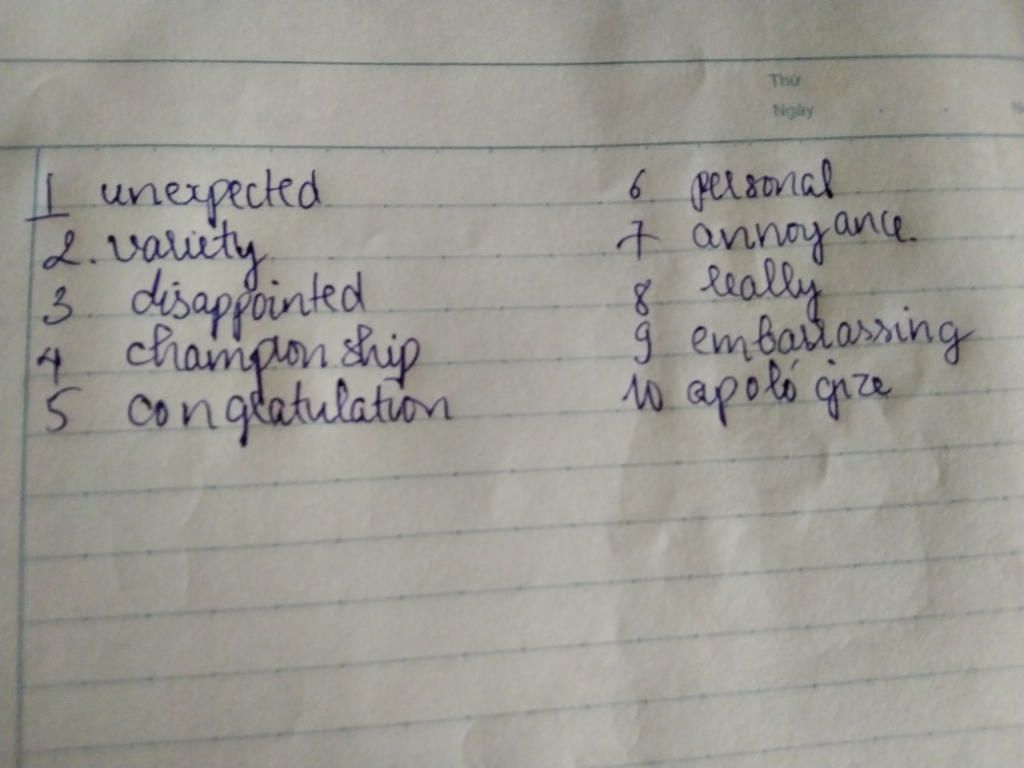 Thứ
Ngày
1 unexpected
2. variety
3 disappointed
4 championship
5 congratulation
6 personal
7 annoyance.
8 really
9 embarrassing
10 apologize